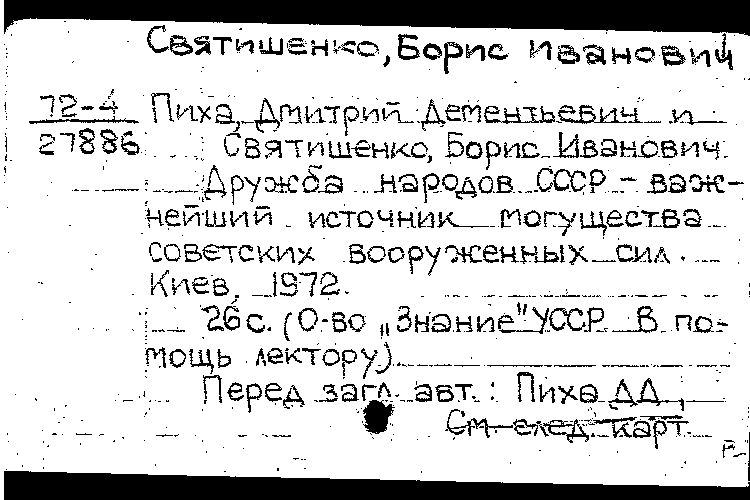 Святишенко, Борис Иванович
72-4 Пиха, Дмитрий Дементьевич и
27886 Святишенко, Борис Иванович.
Дружба народов СССР – важ-
нейший источник могущества
советских вооруженных сил.
Киев, 1972.
26с. (О-во „Знание" УССР В по-
мощь лектору).
Перед загл. авт.: Пиха Д.Д.,
См. след. карт.